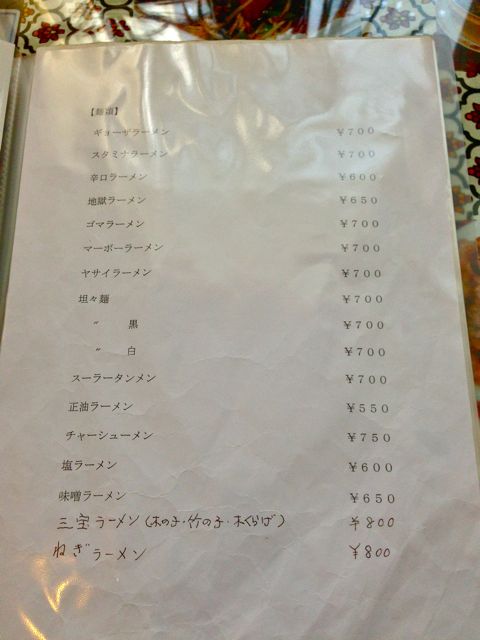 【麺類】
ギョーザラーメン ￥７００
スタミナラーメン ￥７００
辛口ラーメン ￥６００
地獄ラーメン ￥６５０
ゴマラーメン ￥７００
マーボーラーメン ￥７００
ヤサイラーメン ￥７００
坦々麺 ￥７００
〃 黒 ￥７００
〃 白 ￥７００
スーラータンメン ￥７００
正油ラーメン ￥５５０
チャーシューメン ￥７５０
塩ラーメン ￥６００
味噌ラーメン ￥６５０
三宝ラーメン（木の子・竹の子・木くらげ） ￥800
ねぎラーメン ￥800